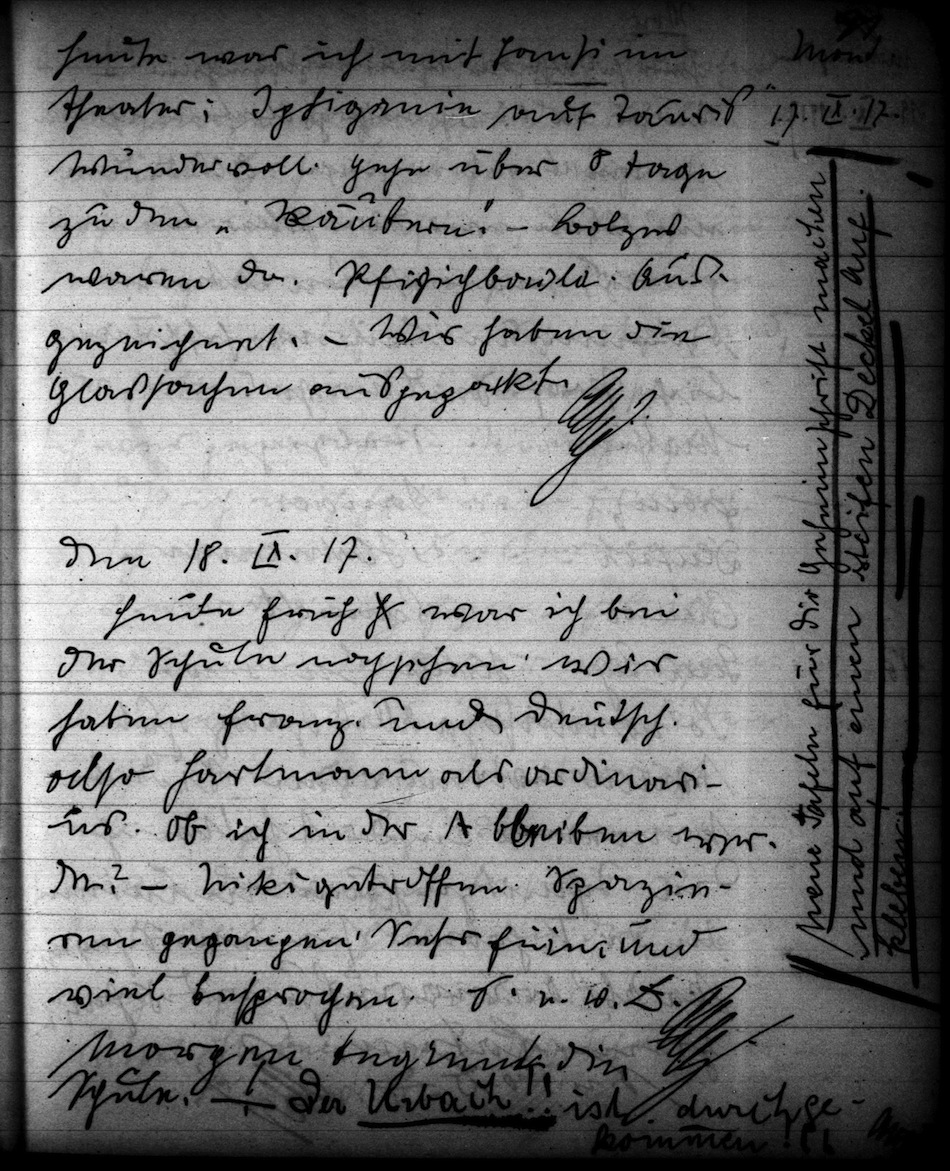 heute war ich mit Hansi im
Theater: Iphigenie auf Tauris
Wundervoll. Gehe über 8 Tage
zu den "Räubern". –
waren da. Pfirsichbowle. Aus-
gezeichnet. – Wir haben die
Glassachen ausgepackt.
Mont.
17. IX. 17.
den 18. IX. 17.
heute früh war ich bei
der Schule nachsehen. Wir
haben franz. und deutsch.
also Hartmann als Ordinari-
us. Ob ich in der A bleiben wer-
de? – Niki getroffen. Spazie-
ren gegangen. Sehr fein und
viel besprochen.
Morgen beginnt die
Schule. – Der Urbach!! ist durchge-
kommen!!!
Neue Tafeln für die Geheimschrift machen
und auf einen steifen Deckel auf-
kleben.